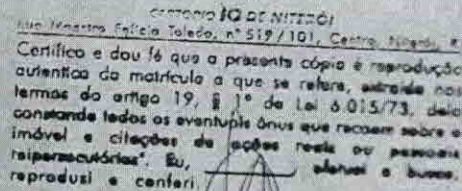 CARTORIO 10 DE NITERÓI
Rua Maestro Felicio Toledo, nº 519/101, Centro, Niterói, R
Certifico e dou fé que a presente cópia é reprodução
autentica da matrícula a que se refere, extraida nos
termos do artigo 19, § 1º da Lei 6.015/73, dela
constando todos os eventuais ônus que recaem sobre o
imóvel e citações de ações reais ou pessoais
reipersecutórias". Eu, efetuei a busca,
reproduzi e conferi